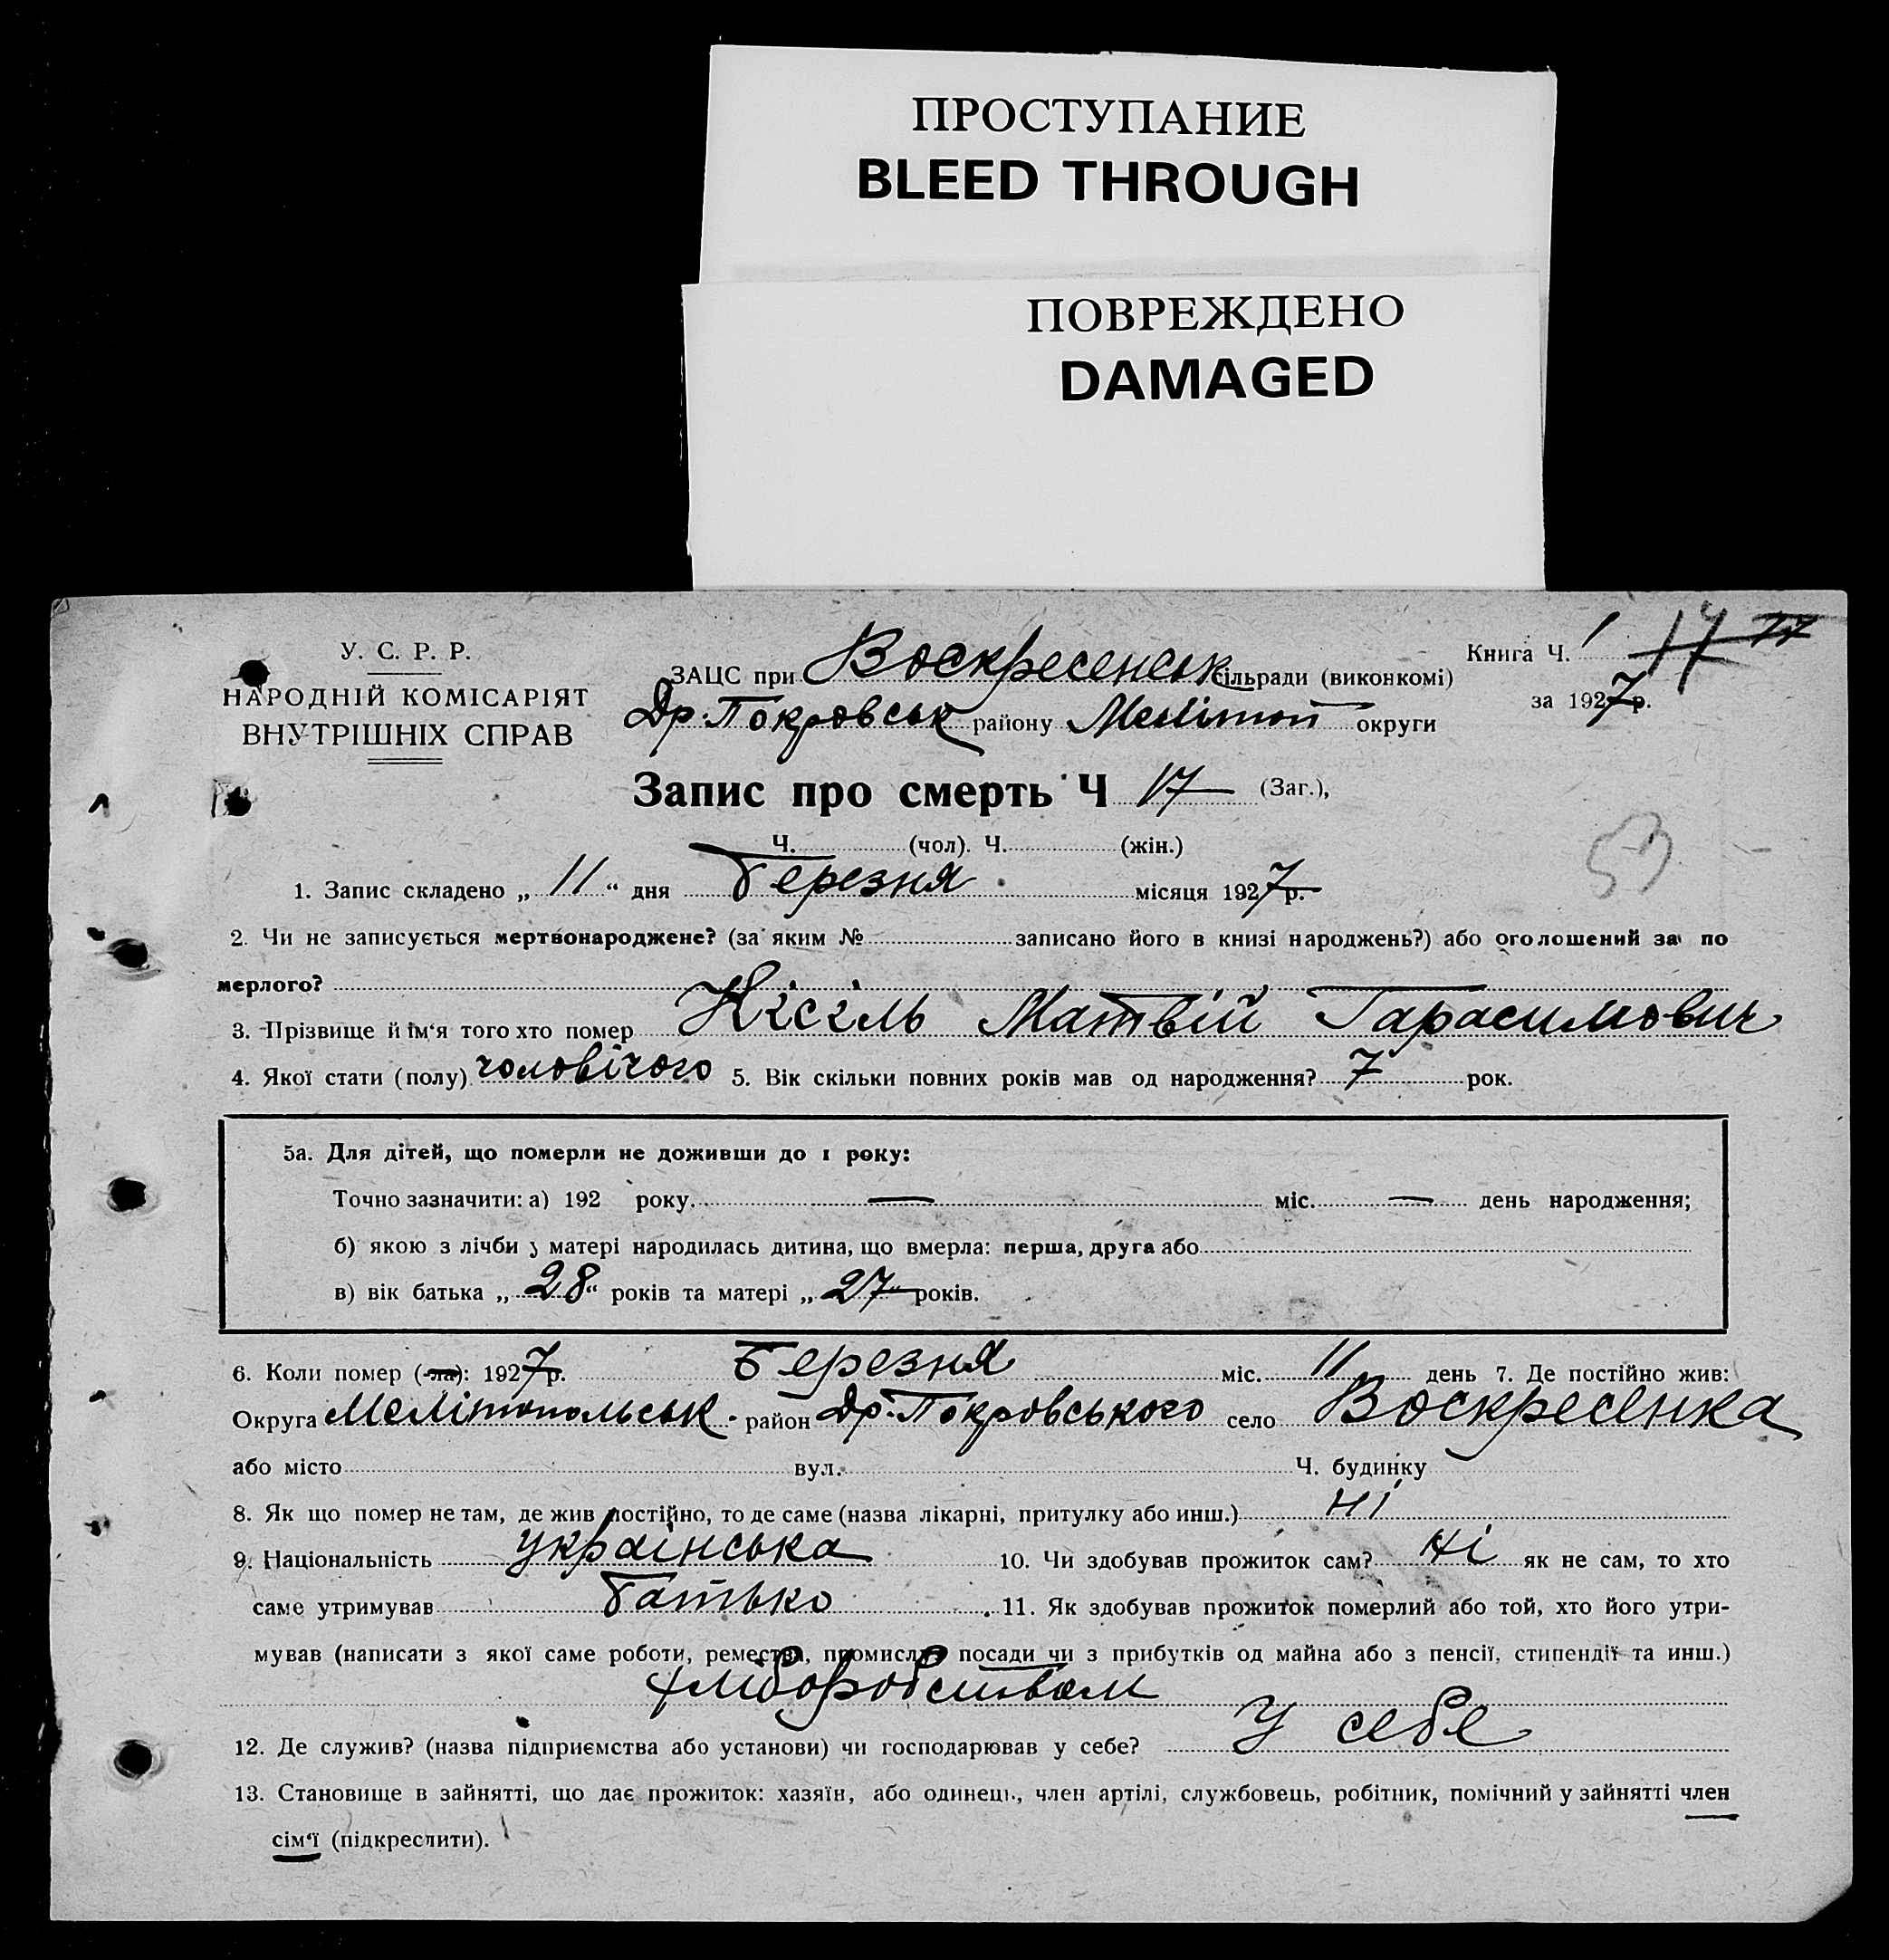 ПРОСТУПАНИЕ
BLEED THROUGH
ПОВРЕЖДЕНО
DAMAGED
У. С. Р. Р.
НАРОДНІЙ КОМІСАРІЯТ
ВНУТРІШНІХ СПРАВ
Книга Ч. 1 17 77
за 1927р.
ЗАЦС при Воскресенськ сільради (виконкомі)
Др. Покровськ району Мелітоп округи
Запис про смерть Ч 17 (Заг.),
Ч. (чол). Ч. (жін.)
53
1. Запис складено „ 11 “ дня Березня місяця 1927р.
2. Чи не записується мертвонароджене? (за яким № записано його в книзі народжень?) або оголошений за по
мерлого?
3. Прізвище й ім‘я того хто помер Кісіль Матвій Гарасимович
4. Якої стати (полу) чоловічого 5. Вік скільки повних років мав од народження? 7 рок.
5а. Для дітей, що померли не доживши до 1 року:
Точно зазначити: а) 192 року. — міс. — день народження;
б) якою з лічби у матері народилась дитина, що вмерла: перша, друга або
в) вік батька „ 28 “ років та матері „ 27 “ років.
6. Коли помер (-ла): 1927р. Березня міс. 11 день 7. Де постійно жив:
Округа Мелітопольськ. район Др. Покровського село Воскресенка
або місто вул. Ч. будинку
8. Як що помер не там, де жив постійно, то де саме (назва лікарні, притулку або инш.) Ні
9. Національність українська 10. Чи здобував прожиток сам? Ні як не сам, то хто
саме утримував батько . 11. Як здобував прожиток померлий або той, хто його утри-
мував (написати з якої саме роботи, ремества, промислу, посади чи з прибутків од майна або з пенсії, стипендії та инш.)
хліборобством
12. Де служив? (назва підприємства або установи) чи господарював у себе? У себе
13. Становище в зайнятті, що дає прожиток: хазяїн, або одинець, член артілі, службовець, робітник, помічний у зайнятті член
сім‘ї (підкреслити).